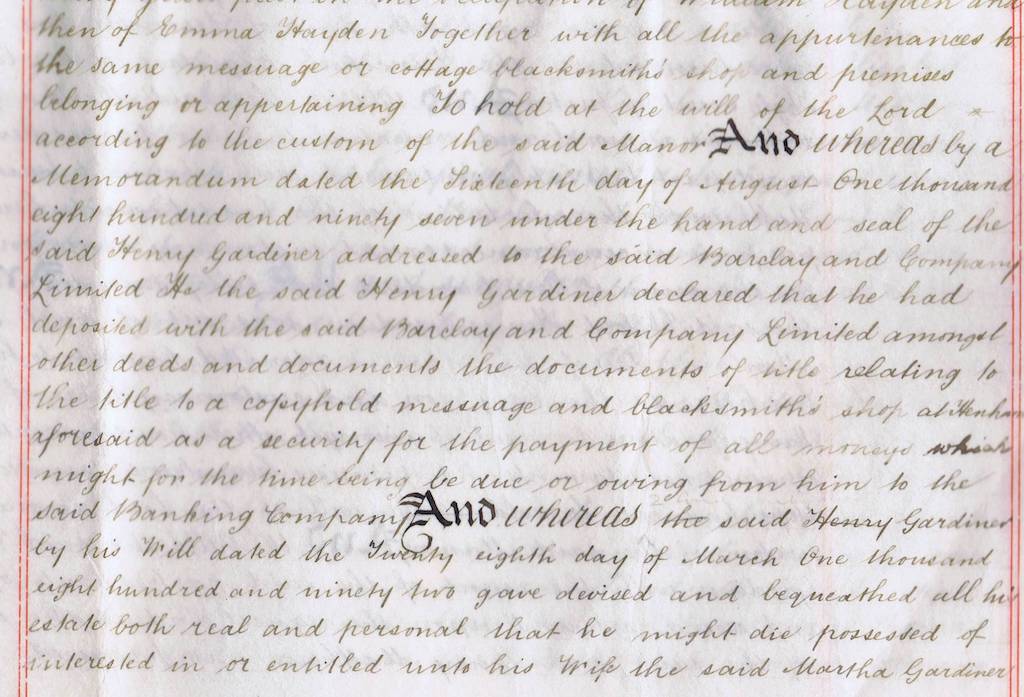 in the occupation of William Hayden and
then of Emma Hayden Together with all the appurtenances to
the same messuage or cottage blacksmith's shop and premises
belonging or appertaining To hold at the will of the Lord
according to the custom of the said Manor And whereas by a
Memorandum dated the Sixteenth day of August One thousand
eight hundred and ninety seven under the hand and seal of the
said Henry Gardiner addressed to the said Barclay and Company
Limited He the said Henry Gardiner declared that he had
deposited with the said Barclay and Company Limited amongst
other deeds and documents the documents of title relating to
the title to a copyhold messuage and blacksmith's shop at Henham
aforesaid as a security for the payment of all moneys which
might for the time being be due or owing from him to the
said Banking Company And whereas the said Henry Gardiner
by his Will dated the Twenty eighth day of March One thousand
eight hundred and ninety two gave devised and bequeathed all his
estate both real and personal that he might die possessed of
interested in or entitled unto his Wife the said Martha Gardiner